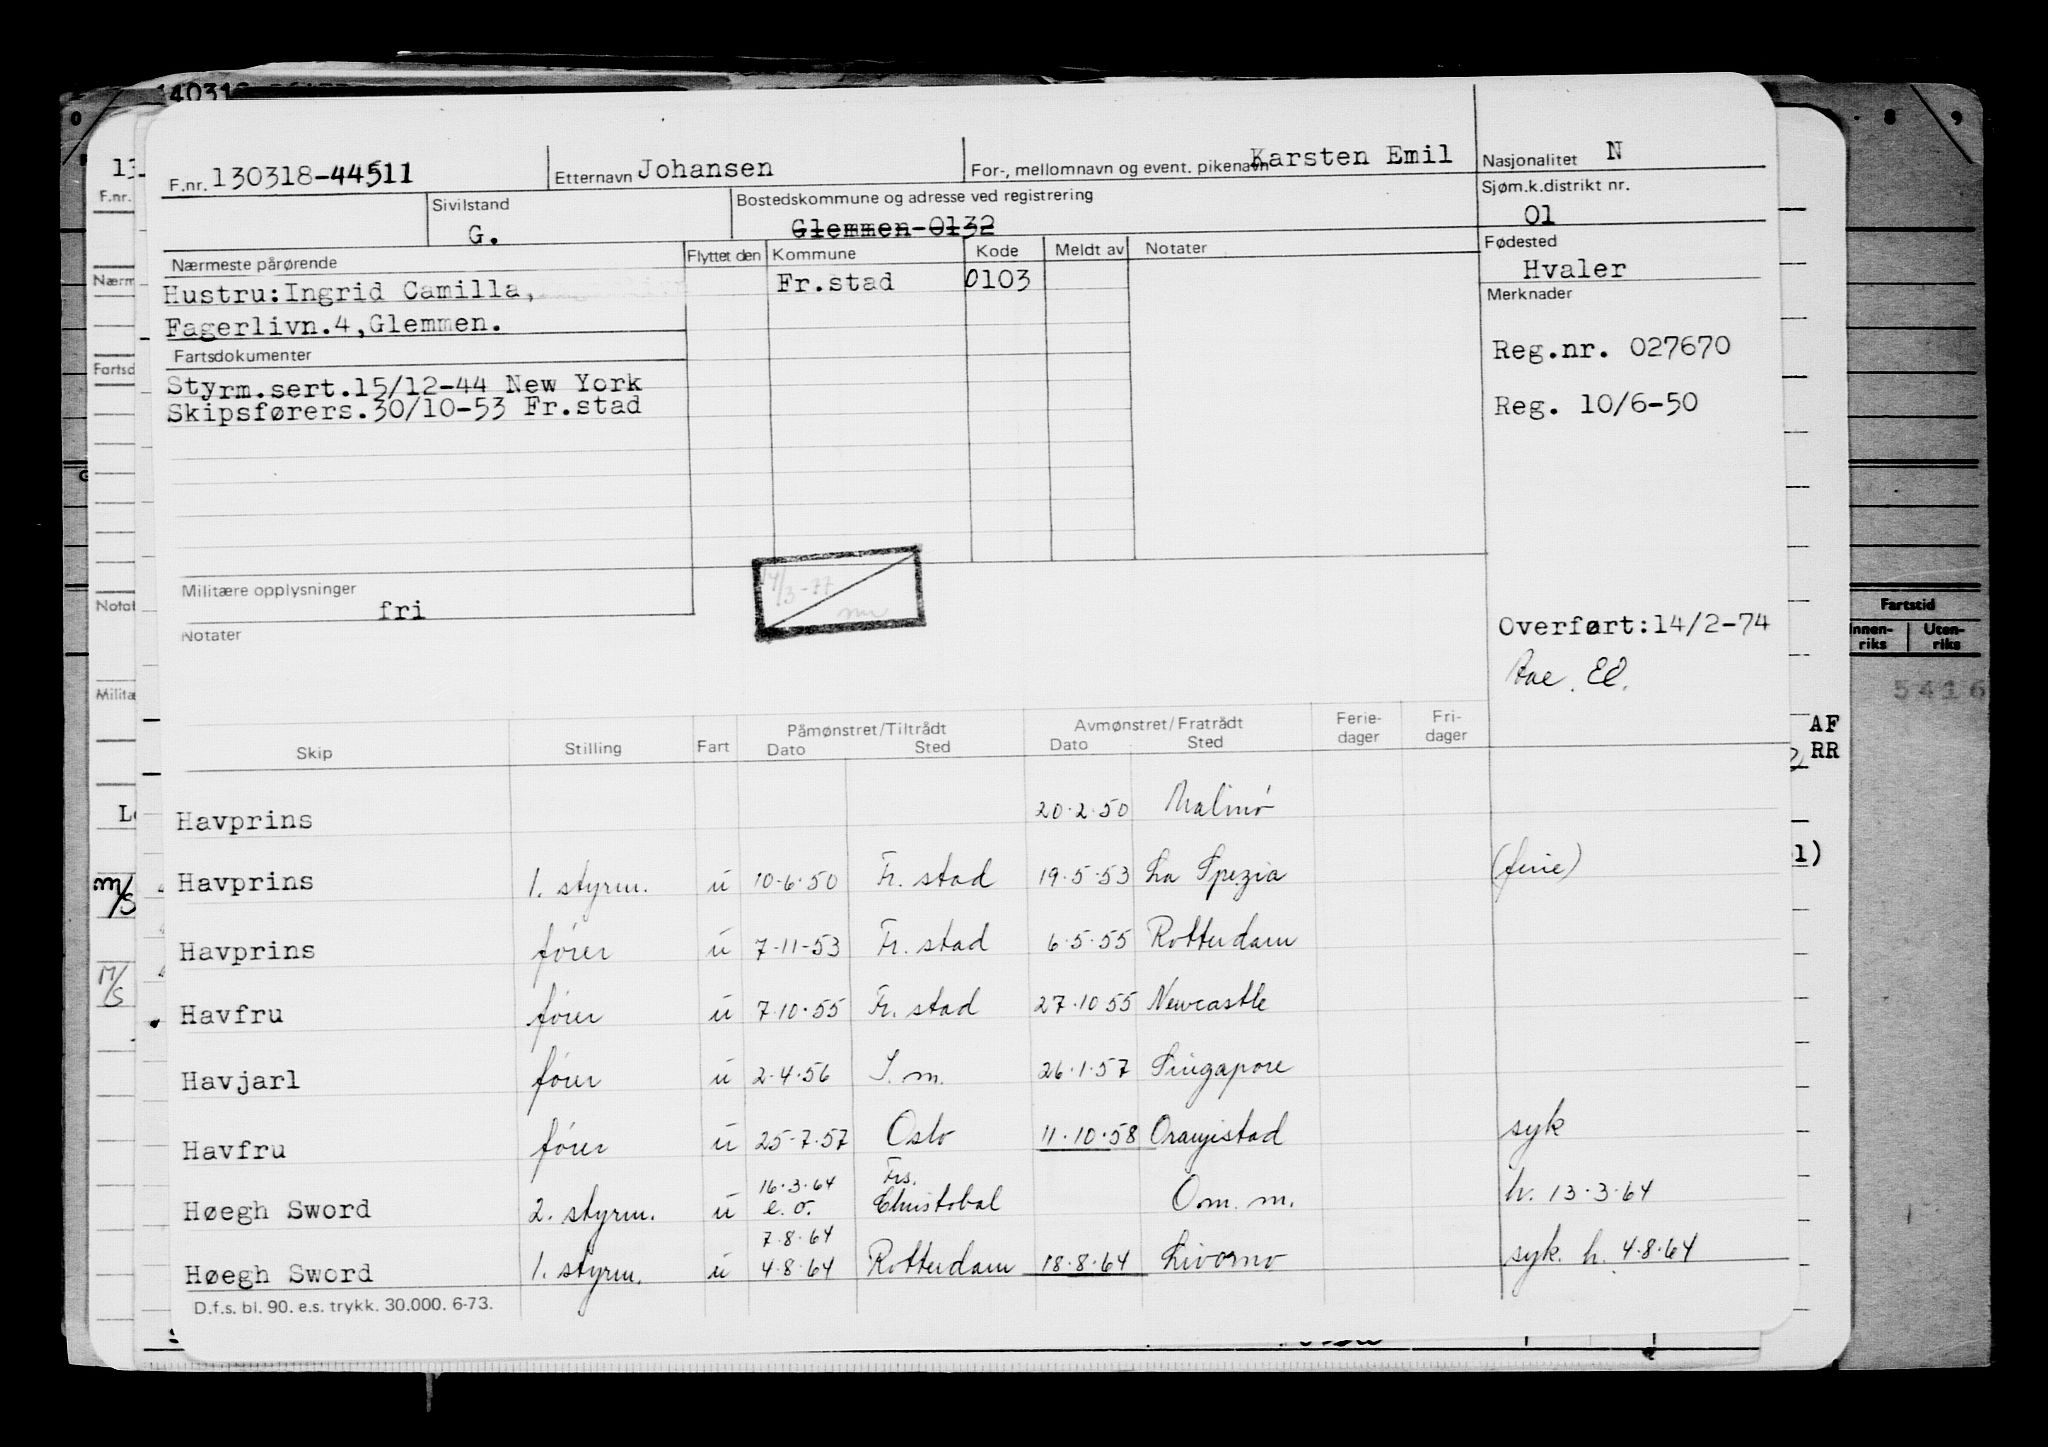 F.nr. 130318-44511 Etternavn Johansen For-, mellomnavn og event. pikenavn Karsten Emil Nasjonalitet N
Sivilstand G. Bostedskommune og adresse ved registrering Glemmen-0132 Sjøm.k.distrikt nr. 01
Nærmeste pårørende Flyttet den Kommune Kode Meldt av Notater Fødested Hvaler
Hustru: Ingrid Camilla, Fr.stad 0103 Merknader
Fagerlivn.4, Glemmen.
Fartsdokumenter Reg.nr. 027670
Styrm.sert.15/12-44 New York
Skipsførers.30/10-53 Fr.stad Reg. 10/6-50
Militære opplysninger fri
14/3-77
Notater Overført:14/2-74
Skip Stilling Fart Påmønstret/Tiltrådt Dato Sted Avmønstret/Fratrådt Dato Sted Ferie-dager Fri-dager
Havprins 20.2.50 Malmø
Havprins 1. styrm. u 10.6.50 Fr. stad 19.5.53 La Spezia (ferie)
Havprins fører u 7-11-53 Fr. stad 6.5.55 Rotterdam
Havfru fører u 7.10.55 Fr. stad 27.10 55 Newcastle
Havjarl fører u 2.4.56 S. m. 26.1.57 Singapore
Havfru fører u 25-7.57 Oslo 11.10.58 Oranjestad syk
Høegh Sword 2. styrm. u 16.3.64 e. o. Frs. Christobal Om. m. h. 13.3.64
Høegh Sword 1. styrm. u 7.8.64 4.8.64 Rotterdam 18.8.64 Livorno syk. h. 4.8.64
D.f.s. bl. 90. e.s. trykk. 30.000. 6-73.
Fartstid
Innen-riks Uten-riks
5416
AF
RR